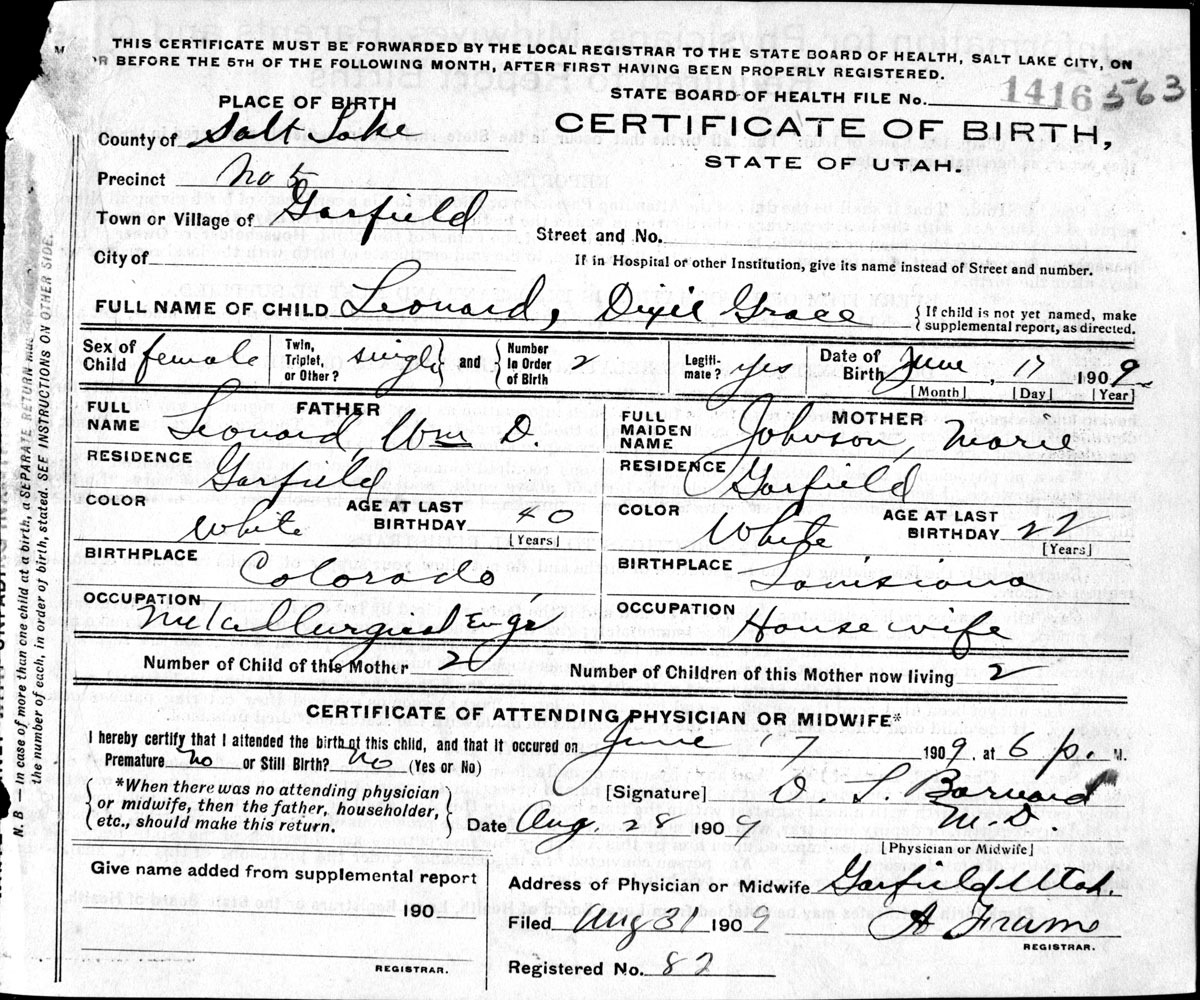 THIS CERTIFICATE MUST BE FORWARDED BY THE LOCAL REGISTRAR TO THE STATE BOARD OF HEALTH, SALT LAKE CITY, ON
OR BEFORE THE 5TH OF THE FOLLOWING MONTH, AFTER FIRST HAVING BEEN PROPERLY REGISTERED.
STATE BOARD OF HEALTH FILE No. 1416 563
PLACE OF BIRTH
CERTIFICATE OF BIRTH,
STATE OF UTAH.
County of Salt Lake
Precinct No 5
Town or Village of Garfield
Street and No.
City of
If in Hospital or other Institution, give its name instead of Street and number.
FULL NAME OF CHILD Leonard, Dixie Grace { If child is not yet named, make supplemental report, as directed.
Sex of Child female Twin, Triplet, or Other? single and Number in Order of Birth 2 Legiti-mate? yes Date of Birth June, 17 1909
[Month] [Day] [Year]
FATHER
FULL NAME Leonard, Wm D.
RESIDENCE Garfield
COLOR White AGE AT LAST BIRTHDAY 40
[Years]
BIRTHPLACE Colorado
OCCUPATION Metallurgical Eng'r
MOTHER
FULL MAIDEN NAME Johnson, Marie
RESIDENCE Garfield
COLOR White AGE AT LAST BIRTHDAY 22
[Years]
BIRTHPLACE Louisiana
OCCUPATION Housewife
Number of Child of this Mother 2 Number of Children of this Mother now living 2
CERTIFICATE OF ATTENDING PHYSICIAN OR MIDWIFE*
I hereby certify that I attended the birth of this child, and that it occured on June 17 1909. at 6 p. M.
Premature no or Still Birth? no (Yes or No)
*When there was no attending physician
or midwife, then the father, householder,
etc., should make this return.
[Signature] O. S. Barnard
M.D.
Date Aug. 28 1909
[Physician or Midwife]
Give name added from supplemental report
190
REGISTRAR.
Address of Physician or Midwife Garfield Utah.
Filed Aug 31 1909 A Frame
REGISTRAR.
Registered No. 82
N. B. — In case of more than one child at a birth, a SEPARATE RETURN
the number of each, in order of birth, stated. SEE INSTRUCTIONS ON OTHER SIDE.